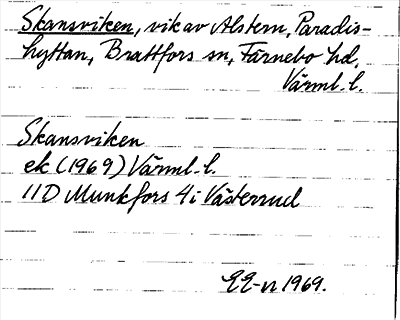 Skansviken, vik av Alstern, Paradis-
hyttan, Brattfors sn, Färnebo hd,
Värml. l.
Skansviken
ek (1969) Värml. l.
11D Munkfors 4i Västerrud
EE-n 1969.